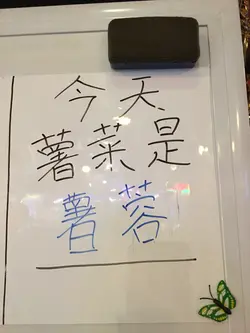 今天
薯菜是
薯蓉